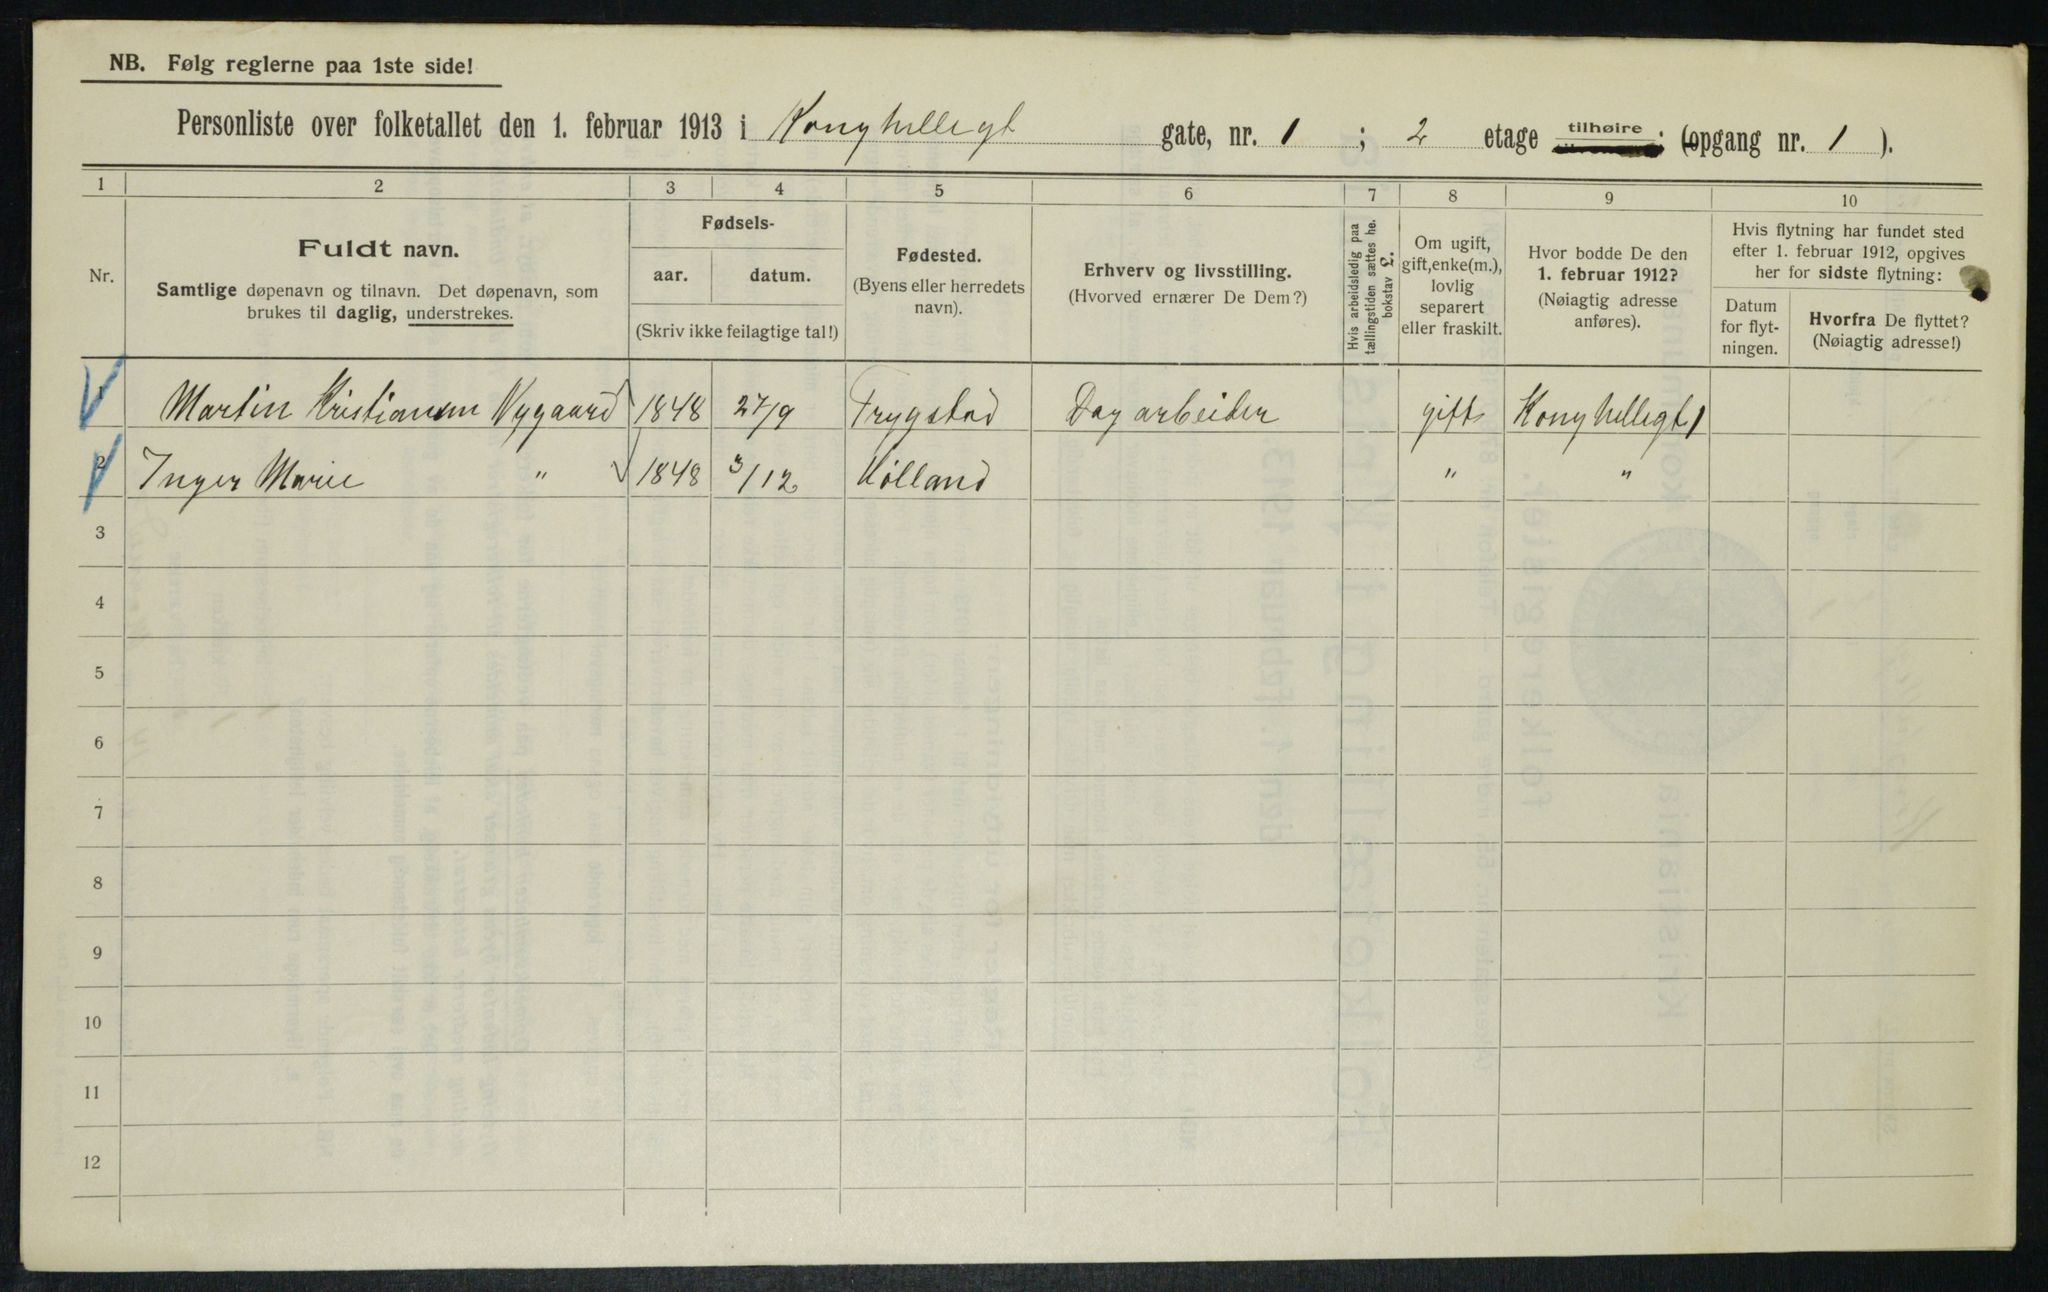 NB. Følg reglerne paa 1ste side!
Personliste over folketallet den 1. februar 1913 i Konghellegt gate, nr. 1 ; 2 etage tilhøire (opgang nr. 1 ).
1 2 3 4 5 6 7 8 9 10
Nr.
Fuldt navn.
Samtlige døpenavn og tilnavn. Det døpenavn, som
brukes til daglig, understrekes.
Fødsels-
aar. datum.
(Skriv ikke feilagtige tal!)
Fødested.
(Byens eller herredets
navn).
Erhverv og livsstilling.
(Hvorved ernærer De Dem?)
Hvis arbeidsledig paa
tællingstiden sættes he.
bokstav L.
Om ugift,
gift, enke(m.),
lovlig
separert
eller fraskilt.
Hvor bodde De den
1. februar 1912?
(Nøiagtig adresse
anføres).
Hvis flytning har fundet sted
efter 1. februar 1912, opgives
her for sidste flytning:
Datum
for flyt-
ningen.
Hvorfra De flyttet?
(Nøiagtig adresse!)
1 Martin Kristiansen Nygaard 1848 27/9 Trygstad Dagarbeider gift Konghellegt 1
2 Inger Marie " 1848 3/12 Høland " "
3
4
5
6
7
8
9
10
11
12